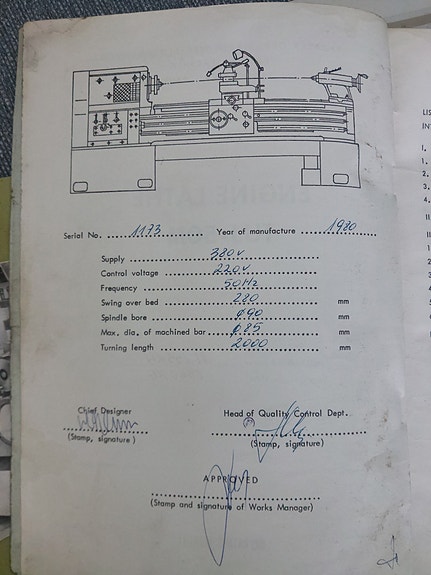 Serial No. 1173 Year of manufacture 1980
Supply 380v
Control voltage 220v
Frequency 50Hz
Swing over bed mm
Spindle bore ø90 mm
Max. dia. of machined bar ø85 mm
Turning length 2000 mm
Chief Designer Head of Quality Control Dept.
(Stamp, signature) (Stamp, signature)
APPROVED
(Stamp and signature of Works Manager)